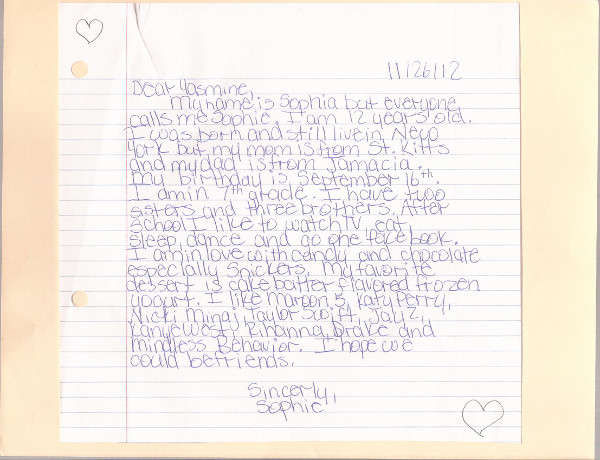 11/26/12
Dear Yasmine,
My name is Sophia but everyone
calls me Sophie. I am 12 years old.
I was born and still live in New
York but my mom is from St. Kitts
and my dad is from Jamacia.
My birthday is September 16th.
I am in 7th grade. I have two
sisters and three brothers. After
school I like to watch TV, eat,
sleep, dance and go one facebook.
I am in love with candy and chocolate
especially Snickers. My favorite
dessert is cake batter flavored frozen
yogurt. I like maroon 5, Katy Perry,
Nicki Minaj, Taylor Swift, Jay Z,
Kanye West, Rihanna, Drake and
mindless Behavior. I hope we
could be friends.
Sincerly,
Sophie